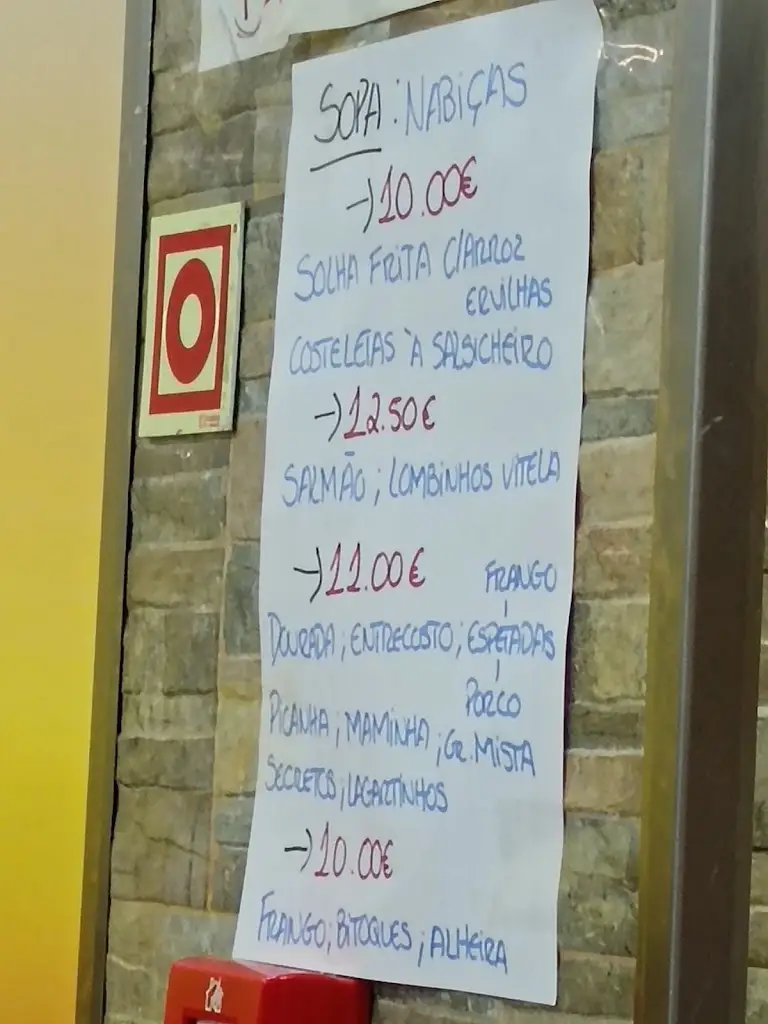 SOPA: NABIÇAS
→10.00€
SOLHA FRITA C/ARROZ
ERVILHAS
COSTELETAS À SALSICHEIRO
→12.50€
SALMÃO; LOMBINHOS VITELA
→11.00€ FRANGO
DOURADA; ENTRECOSTO; ESPETADAS
PORCO
PICANHA; MAMINHA; GR. MISTA
SECRETOS; LAGARTINHOS
→10.00€
FRANGO; BITOQUES; ALHEIRA